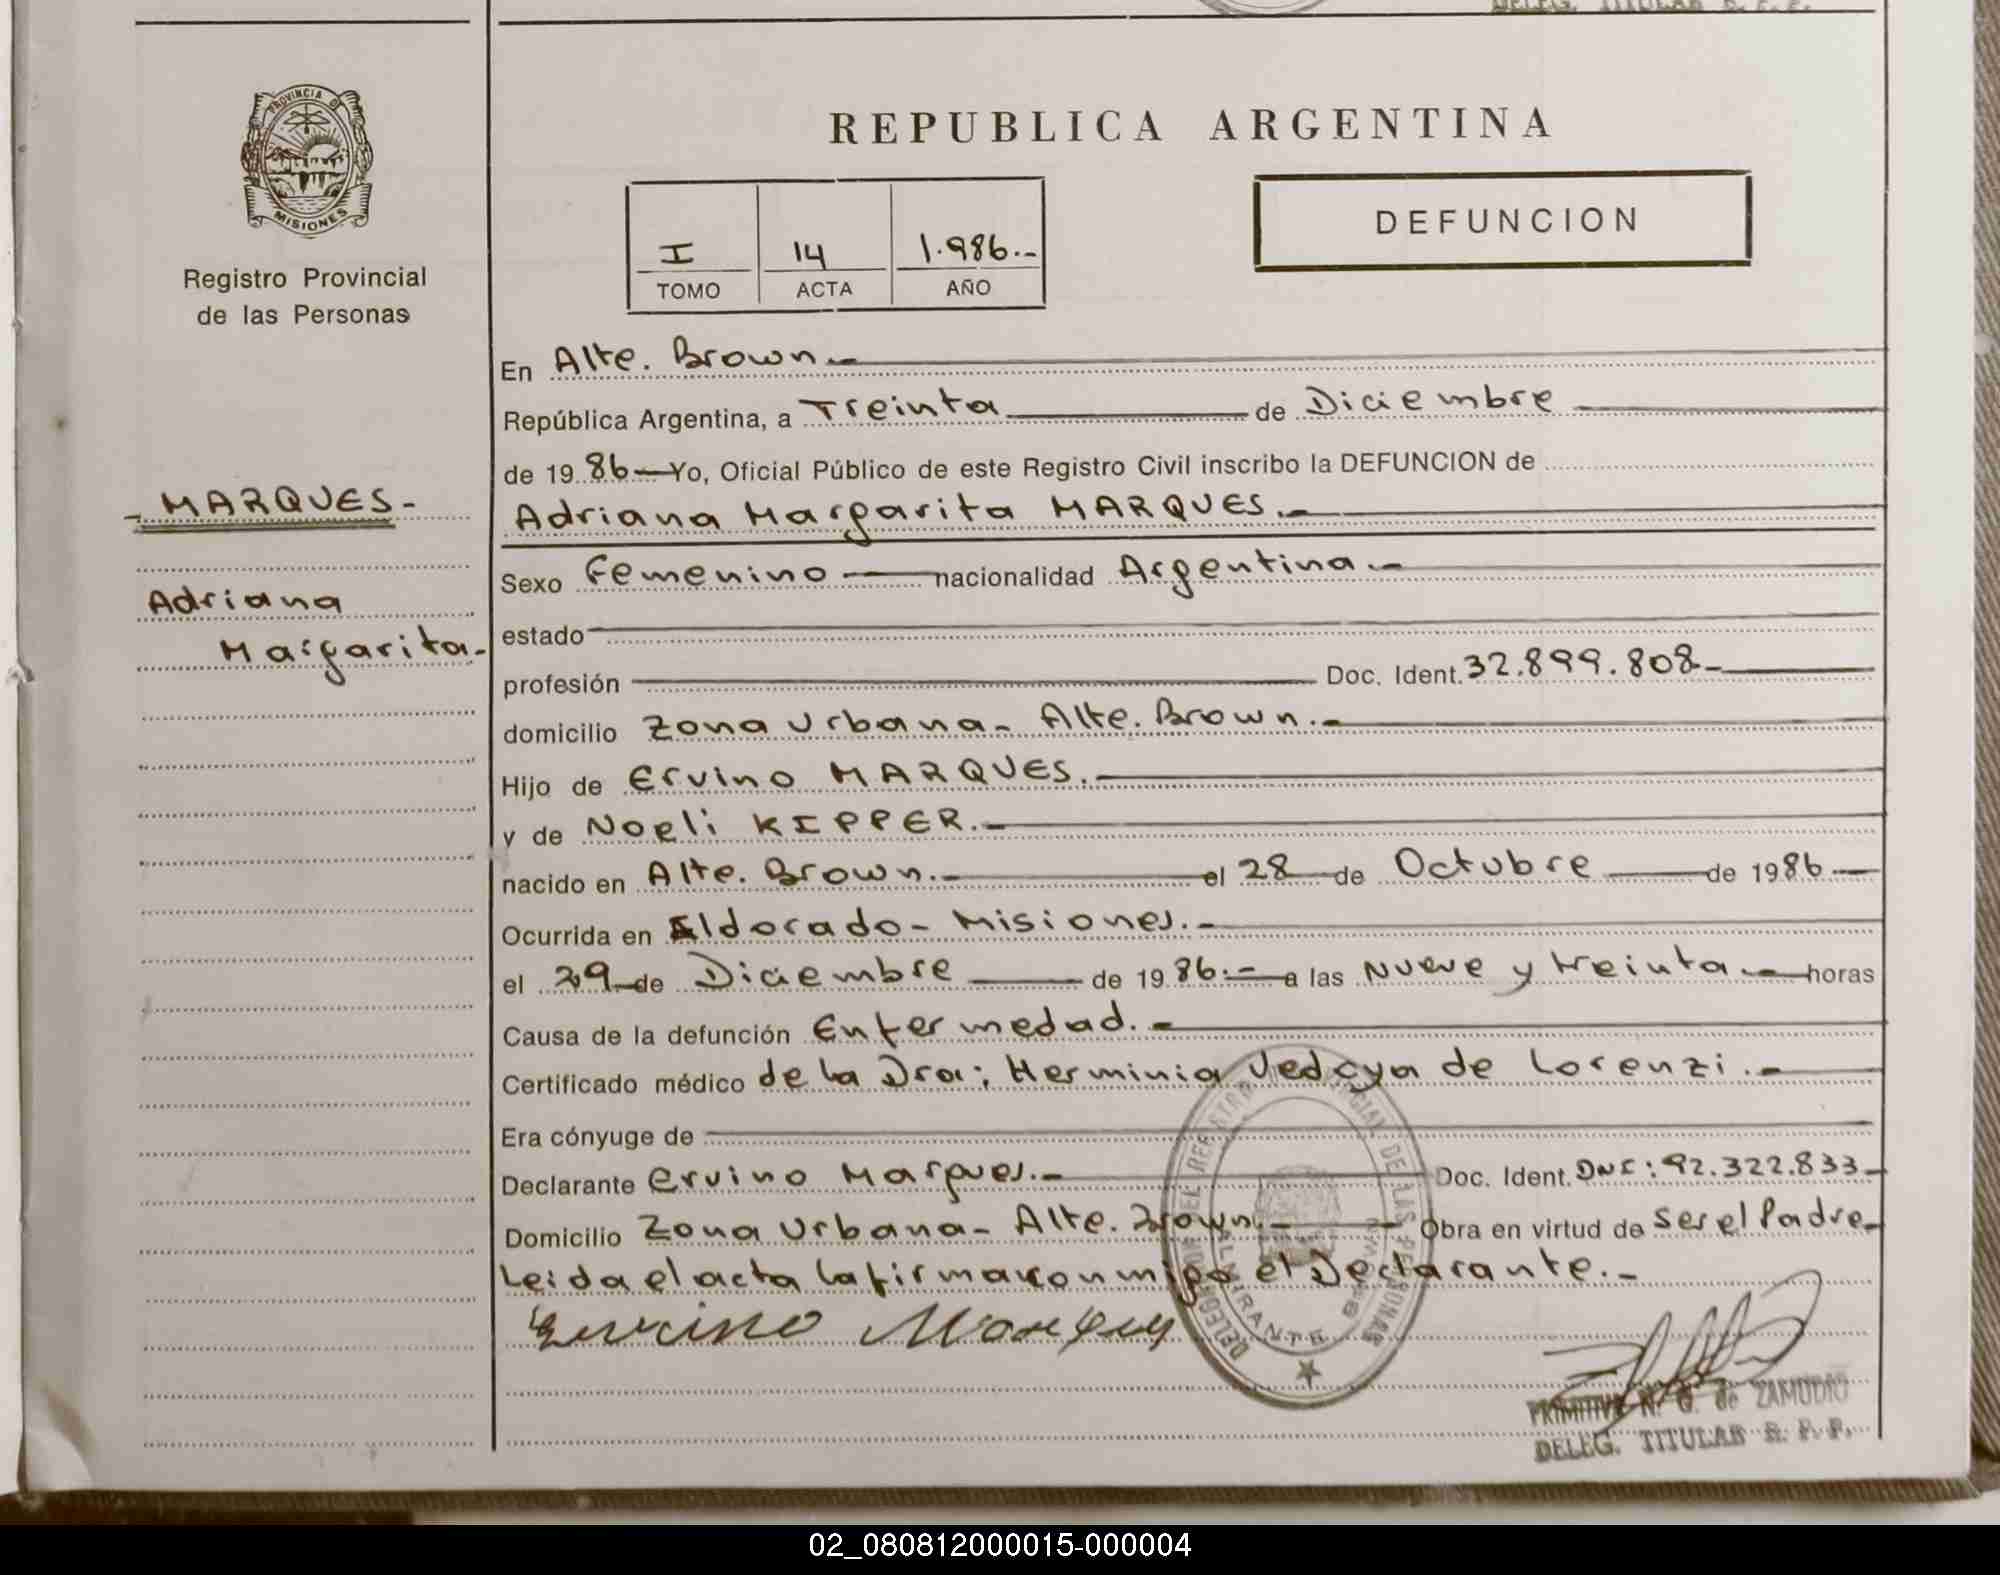 DELEG. TITULAR R. P. P.
PROVINCIA DE
MISIONES
Registro Provincial
de las Personas
REPUBLICA ARGENTINA
I 14 1.986.-
TOMO ACTA AÑO
DEFUNCION
En Alte. Brown.-
República Argentina, a Treinta de Diciembre
de 19 86 Yo, Oficial Público de este Registro Civil inscribo la DEFUNCION de
- MARQUES -
Adriana Margarita MARQUES.-
Sexo Femenino nacionalidad Argentina.-
Adriana
Margarita.-
estado
profesión Doc. Ident. 32.899.808-
domicilio Zona Urbana - Alte. Brown.-
Hijo de Ervino MARQUES.-
y de Noeli KIPPER.-
nacido en Alte. Brown.- el 28 de Octubre de 1986
Ocurrida en Eldorado - Misiones.-
el 29 de Diciembre de 19 86.- a las Nueve y treinta.- horas
Causa de la defunción Enfermedad.-
Certificado médico de la Dra: Herminia de Lorenzi.-
Era cónyuge de
Declarante Ervino Marques.- Doc. Ident. DNI: 92.322.833-
Domicilio Zona Urbana - Alte. Brown.- Obra en virtud de Ser el Padre-
Leida el acta la firma con migo el Declarante.-
Ervino Marques
DELEGACION DEL REGISTRO PROVINCIAL DE LAS PERSONAS
ALMIRANTE BROWN
PRIMITIVA N. G. de ZAMUDIO
DELEG. TITULAR R. P. P.
02_080812000015-000004